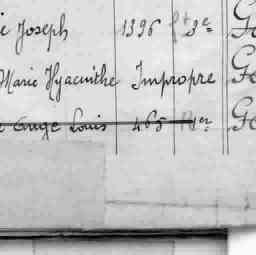 Joseph 1396 3e
Marie Hyacinthe Impropre
Ange Louis 465 1er